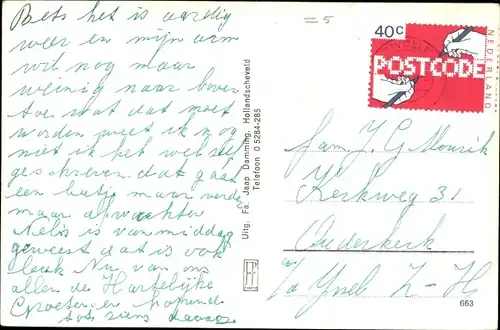 Poets het is aardig
weer en mijn arm
wil nog maar
weinig naar boven
toe wat dat moet
worden weet ik nog
niet ik heb wel zelf
geschreven dat gaat
een beetje maar verder
maar afwachten
Nelis is van middag
geweest dat is ook
leuk Nu van ons
allen de Hartelijke
Groeten en hopende
tot ziens
= 5
Uitg. Fa. Jaap Damming, Hollandscheveld
Telefoon 0 5284-285
40c
NEDERLAND
POSTCODE
fam J G Mourik
Kerkweg 31
Ouderkerk
a/d Yssel Z-H
663